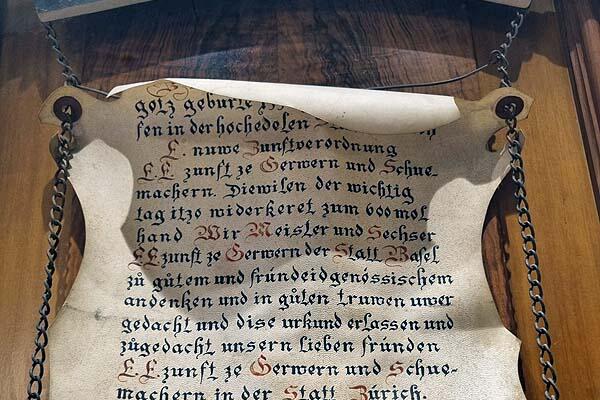 gotz geburte
fen in der hochedelen
E. nuwe Zunftverordnung
E.E. zunft ze Gerwern und Schue-
machern. Diewilen der wichtig
tag itzo widerkeret zum 600 mol
hand Wir Meister und Sechser
E.E. zunft ze Gerwern der Statt Basel
zů gůtem und fründeidgenössischem
andenken und in gůten truwen uwer
gedacht und dise urkund erlassen und
zůgedacht unsern lieben fründen
E.E. zunft ze Gerwern und Schue-
machern in der Statt Zürich.